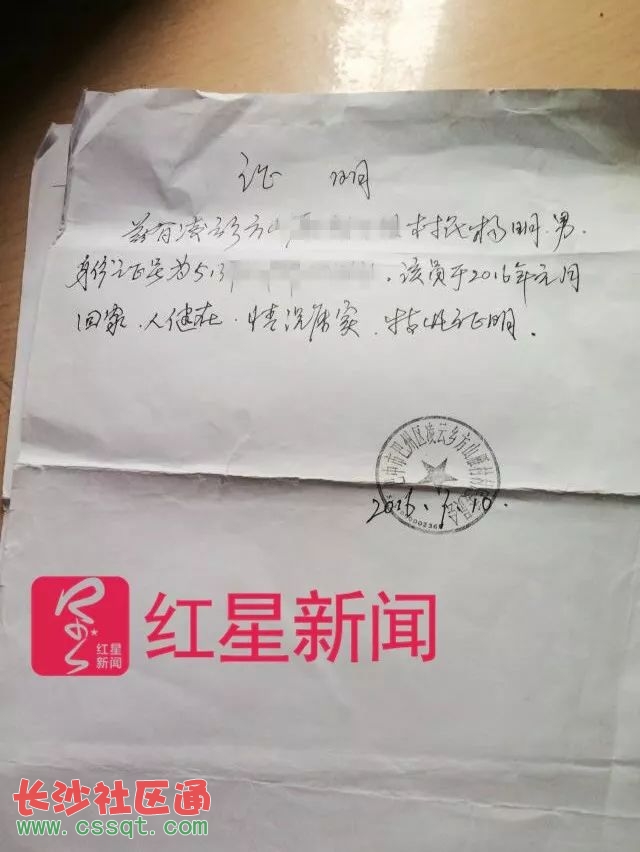 证 明
兹有凌云乡方山 村民杨明.男.
身份证号为513 .该员于2016年元月
回家.人健在.情况属实.特此证明.
巴中市巴州区凌云乡方山 村村
2016. 10.
红星新闻
红星
新闻
长沙社区通
www.cssqt.com